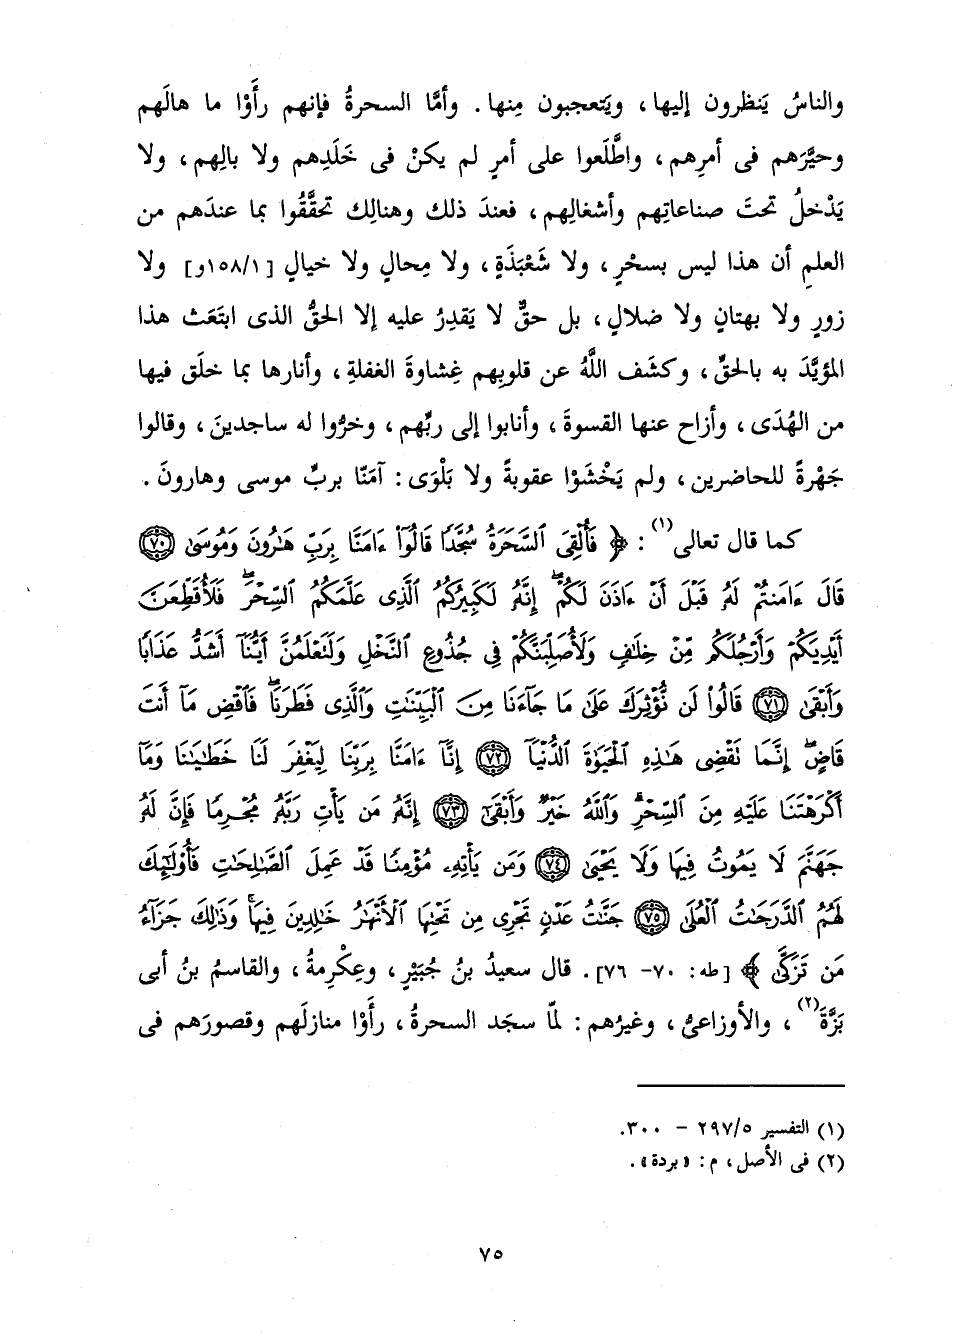 والناسُ يَنظرون إليها، ويَتعجبون مِنها. وأمَّا السحرةُ فإنهم رأَوْا ما هالَهم
وحيَّرَهم فى أمرِهم، واطَّلَعوا على أمرٍ لم يكنْ فى خَلَدِهم ولا بالِهم، ولا
يَدْخلُ تحتَ صناعاتِهم وأشغالِهم، فعندَ ذلك وهنالِك تحقَّقُوا بما عندَهم من
العلمِ أن هذا ليس بسحْرٍ، ولا شَعْبَذَةٍ، ولا مِحالٍ ولا خيالٍ [١٥٨/١و] ولا
زورٍ ولا بهتانٍ ولا ضلالٍ، بل حقٌّ لا يَقدِرُ عليه إلا الحقُّ الذى ابتَعَث هذا
المؤيَّدَ به بالحقِّ، وكشَف اللَّهُ عن قلوبِهم غِشاوةَ الغفلةِ، وأنارها بما خلَق فيها
من الهُدَى، وأزاح عنها القسوةَ، وأنابوا إلى ربِّهم، وخرُّوا له ساجدينَ، وقالوا
جَهْرةً للحاضرين، ولم يَخْشَوْا عقوبةً ولا بَلْوَى: آمَنّا بربِّ موسى وهارونَ.
كما قال تعالى(١): ﴿ فَأُلْقِىَ ٱلسَّحَرَةُ سُجَّدًا قَالُوٓا۟ ءَامَنَّا بِرَبِّ هَـٰرُونَ وَمُوسَىٰ ۝٧٠
قَالَ ءَامَنتُمْ لَهُۥ قَبْلَ أَنْ ءَاذَنَ لَكُمْ ۖ إِنَّهُۥ لَكَبِيرُكُمُ ٱلَّذِى عَلَّمَكُمُ ٱلسِّحْرَ ۖ فَلَأُقَطِّعَنَّ
أَيْدِيَكُمْ وَأَرْجُلَكُم مِّنْ خِلَـٰفٍ وَلَأُصَلِّبَنَّكُمْ فِى جُذُوعِ ٱلنَّخْلِ وَلَتَعْلَمُنَّ أَيُّنَآ أَشَدُّ عَذَابًا
وَأَبْقَىٰ ۝٧١ قَالُوا۟ لَن نُّؤْثِرَكَ عَلَىٰ مَا جَآءَنَا مِنَ ٱلْبَيِّنَـٰتِ وَٱلَّذِى فَطَرَنَا ۖ فَٱقْضِ مَآ أَنتَ
قَاضٍ ۖ إِنَّمَا تَقْضِى هَـٰذِهِ ٱلْحَيَوٰةَ ٱلدُّنْيَآ ۝٧٢ إِنَّآ ءَامَنَّا بِرَبِّنَا لِيَغْفِرَ لَنَا خَطَـٰيَـٰنَا وَمَآ
أَكْرَهْتَنَا عَلَيْهِ مِنَ ٱلسِّحْرِ ۗ وَٱللَّهُ خَيْرٌ وَأَبْقَىٰٓ ۝٧٣ إِنَّهُۥ مَن يَأْتِ رَبَّهُۥ مُجْرِمًا فَإِنَّ لَهُۥ
جَهَنَّمَ لَا يَمُوتُ فِيهَا وَلَا يَحْيَىٰ ۝٧٤ وَمَن يَأْتِهِۦ مُؤْمِنًا قَدْ عَمِلَ ٱلصَّـٰلِحَـٰتِ فَأُو۟لَـٰٓئِكَ
لَهُمُ ٱلدَّرَجَـٰتُ ٱلْعُلَىٰ ۝٧٥ جَنَّـٰتُ عَدْنٍ تَجْرِى مِن تَحْتِهَا ٱلْأَنْهَـٰرُ خَـٰلِدِينَ فِيهَا ۚ وَذَٰلِكَ جَزَآءُ
مَن تَزَكَّىٰ ﴾ [طه: ٧٠- ٧٦]. قال سعيدُ بنُ جُبَيْرٍ، وعِكْرِمةُ، والقاسمُ بنُ أبى
بَزَّةَ(٢)، والأوزاعىُّ، وغيرُهم: لمّا سجَد السحرةُ، رأَوْا منازلَهم وقصورَهم فى
(١) التفسير ٢٩٧/٥ – ٣٠٠.
(٢) فى الأصل، م: «بردة».
٧٥